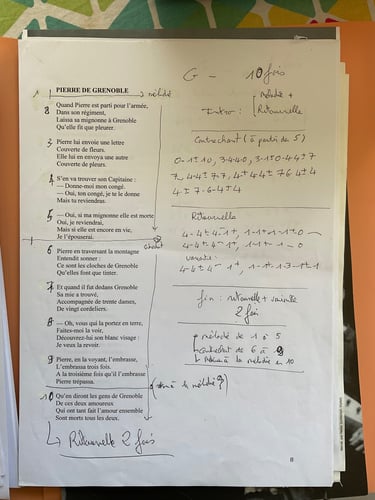 PIERRE DE GRENOBLE
1 → mélodie
2 Quand Pierre est parti pour l'armée,
Dans son régiment,
Laissa sa mignonne à Grenoble
Qu'elle fit que pleurer.
3 Pierre lui envoie une lettre
Couverte de fleurs.
Elle lui en envoya une autre
Couverte de pleurs.
4 S'en va trouver son Capitaine :
— Donne-moi mon congé.
— Oui, ton congé, je te le donne
Mais tu reviendras.
5 — Oui, si ma mignonne elle est morte
Oui, je reviendrai,
Mais si elle est encore en vie,
Je l'épouserai.
6 Pierre en traversant la montagne
Entendit sonner :
Ce sont les cloches de Grenoble
Qu'elles font que tinter.
7 Et quand il fut dedans Grenoble
Sa mie a trouvé,
Accompagnée de trente dames,
De vingt cordeliers.
8 — Oh, vous qui la portez en terre,
Faites-moi la voir,
Découvrez-lui son blanc visage :
Je veux la revoir.
9 Pierre, en la voyant, l'embrasse,
L'embrassa trois fois.
A la troisième fois qu'il l'embrasse
Pierre trépassa.
10 Qu'en diront les gens de Grenoble
De ces deux amoureux
Qui ont tant fait l'amour ensemble
Sont morts tous les deux.
↳ Ritournelle 2 fois
G - 10 fois
Intro : mélodie +
Ritournelle
Contrechant (à partir de 5)
Ritournelle
variante :
fin : ritournelle + variante
2 fois
mélodie de 1 à 5
contrechant de 6 à 9
retour à la mélodie en 10
8